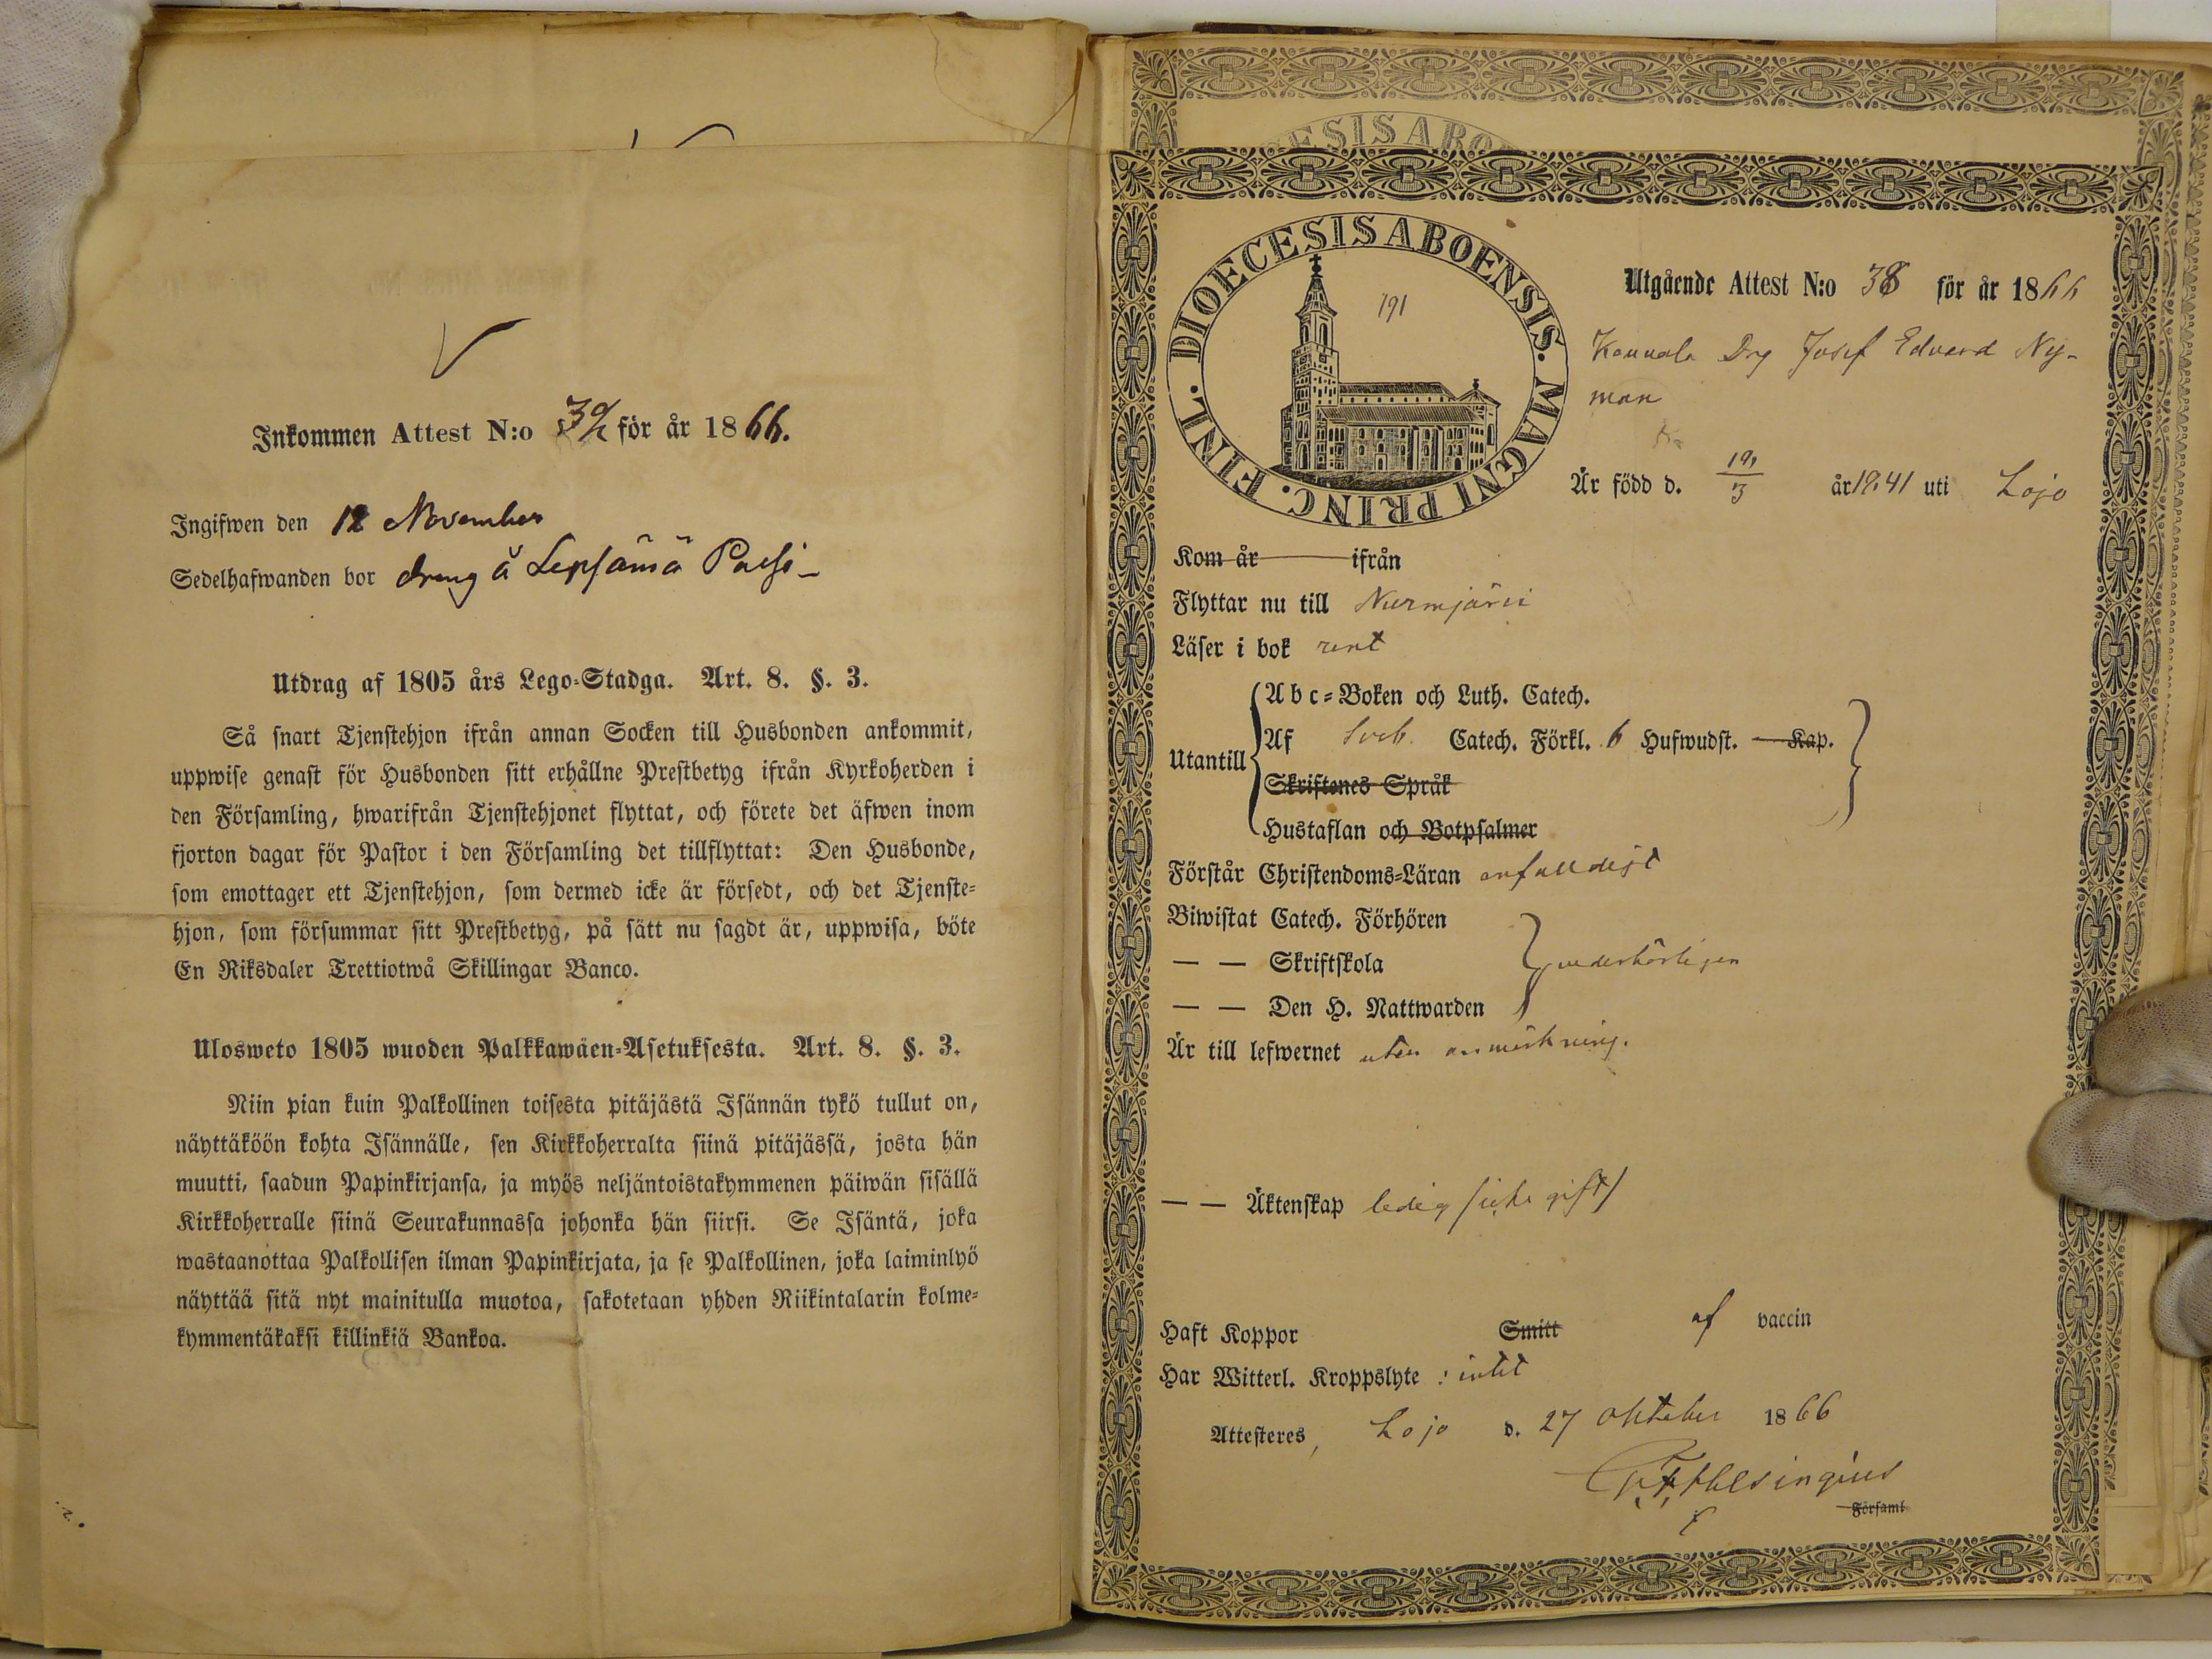 Inkommen Attest N:o för år 1866.
Ingifwen den 12 November
Sedelhafwanden bor dreng å Lepsämä
Utdrag af 1805 års Lego-Stadga. Art. 8. §. 3.
Så snart Tjenstehjon ifrån annan Socken till Husbonden ankommit,
uppwise genast för Husbonden sitt erhållne Prestbetyg ifrån Kyrkoherden i
den Församling, hwarifrån Tjenstehjonet flyttat, och förete det äfwen inom
fjorton dagar för Pastor i den Församling det tillflyttat: Den Husbonde,
som emottager ett Tjenstehjon, som dermed icke är försedt, och det Tjenste-
hjon, som försummar sitt Prestbetyg, på sätt nu sagdt är, uppwisa, böte
En Riksdaler Trettiotwå Skillingar Banco.
Ulosweto 1805 wuoden Palkkawäen-Asetuksesta. Art. 8. §. 3.
Niin pian kuin Palkollinen toisesta pitäjästä Isännän tykö tullut on,
näyttäköön kohta Isännälle, sen Kirkkoherralta siinä pitäjässä, josta hän
muutti, saadun Papinkirjansa, ja myös neljäntoistakymmenen päiwän sisällä
Kirkkoherralle siinä Seurakunnassa johonka hän siirsi. Se Isäntä, joka
wastaanottaa Palkollisen ilman Papinkirjata, ja se Palkollinen, joka laiminlyö
näyttää sitä nyt mainitulla muotoa, sakotetaan yhden Riikintalarin kolme-
kymmentäkaksi killinkiä Bankoa.
ESIS ABO
DIOECESIS ABOENSIS. MAGNI PRINC. FINL.
191
Utgående Attest N:o 38 för år 1866
Drg Josef Edvard Ny-
man
Är född d. 19/3 år 1841 uti Lojo
Kom år ifrån
Flyttar nu till Nurmijärvi
Läser i bok rent
Utantill
Abc-Boken och Luth. Catech.
Af Sveb. Catech. Förkl. 6 Hufwudst. Kap.
Skriftenes Språk
Hustaflan och Botpsalmer
Förstår Christendoms-Läran enfalldigt
Biwistat Catech. Förhören
— — Skriftskola vederbörligen
— — Den H. Nattwarden
Är till lefwernet utan anmärkning.
— — Äktenskap ledig /icke gift/
Haft Koppor Smitt af vaccin
Har Witterl. Kroppslyte : intet
Attesteres, Lojo d. 27 oktober 1866
Helsingius
Församl